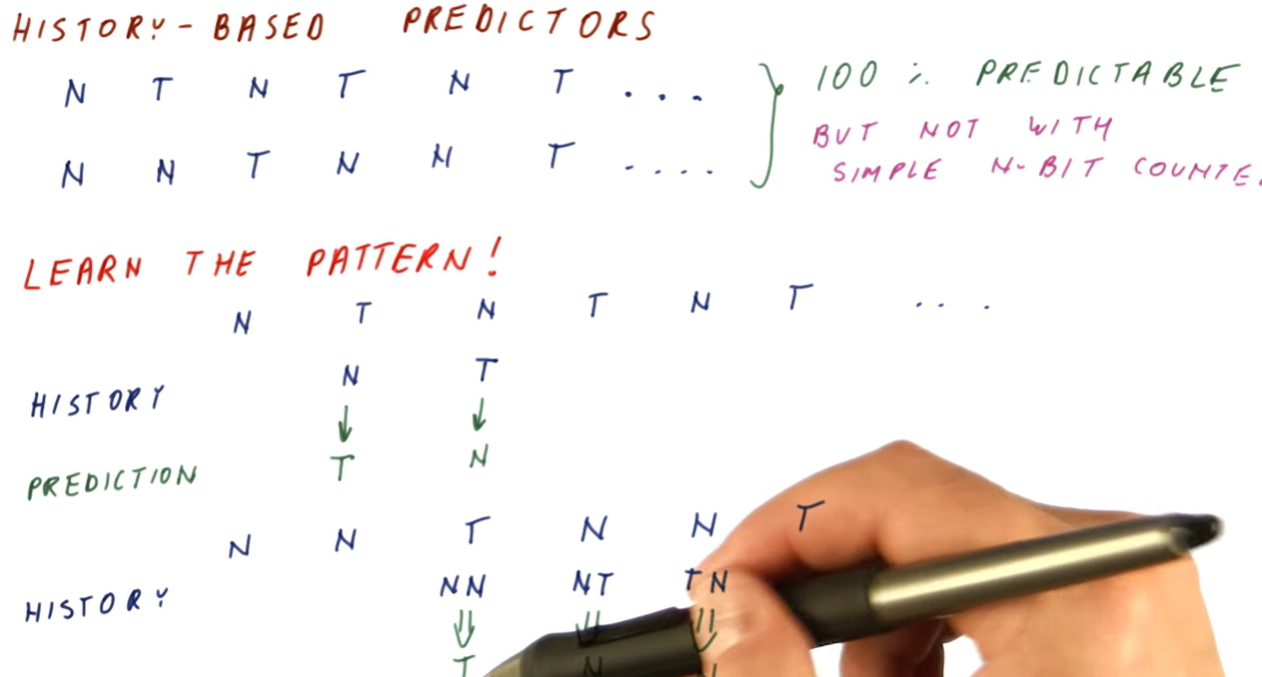 HISTORY-BASED PREDICTORS
N T N T N T ... } 100 % PREDICTABLE
BUT NOT WITH
N N T N N T .... SIMPLE N-BIT
LEARN THE PATTERN!
N T N T N T ...
N T
HISTORY
↓ ↓
PREDICTION T N
N N T N N T
HISTORY NN NT TN
⇓ ⇓ ⇓
T N